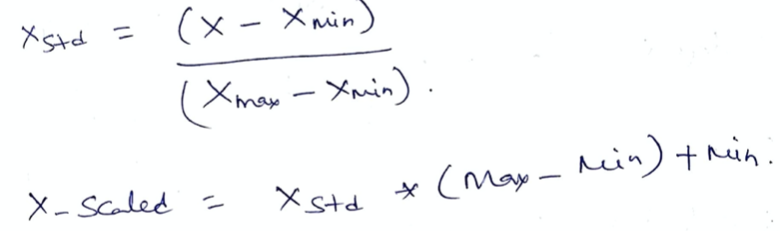 Xstd = (X - Xmin)
(Xmax - Xmin).
X-Scaled = Xstd * (Max - Min) + Min.